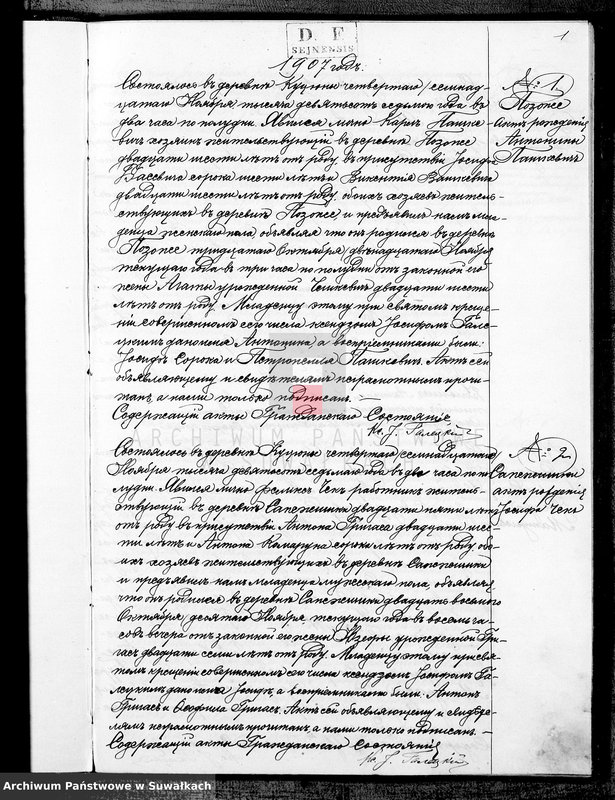 D. F.
SEJNENSIS
1
1907 годъ.
Состоялось въ деревнѣ Куцюны четвертаго /семнад-
цатаго Ноября тысяча девятьсотъ седьмого года въ
два часа по полудни. Явился лично Карлъ Пашке-
вичъ хозяинъ жительствующій въ деревнѣ Позопсе
двадцати шести лѣтъ отъ роду, въ присутствіи Іосифа
сорока шести лѣтъ и Викентія Пашкевича
двадцати шести лѣтъ отъ роду, обоихъ хозяевъ житель-
ствующихъ въ деревнѣ Позопсе и предъявилъ намъ мла-
денца женскаго пола, объявляя что онъ родился въ деревнѣ
Позопсе тридцатаго Октября /двѣнадцатаго Ноября
текущаго года въ три часа по полудни отъ законной его
жены Агаты урожденной двадцати шести
лѣтъ отъ роду. Младенцу этому при святомъ креще-
ніи совершенномъ сего числа ксендзомъ Іосифомъ Гале-
цкимъ дано имя Антонина, а воспріемниками были:
Іосифъ Сорока и Петронелія Пашкевичъ. Актъ сей
объявляющему и свидѣтелямъ неграмотнымъ прочи-
танъ, а нами только подписанъ. —
Содержащій акты Гражданскаго Состоянія
Кс. J. Галецкій
№ 1
Позопсе
актъ рожденія
Антонины
Пашкевичъ
Состоялось въ деревнѣ Куцюны четвертаго /семнадцатаго
Ноября тысяча девятьсотъ седьмаго года въ два часа по по-
лудни. Явился лично Феликсъ Чекъ работникъ житель-
ствующій въ деревнѣ Сапежишки двадцати пяти лѣтъ
отъ роду въ присутствіи Антона Григаса двадцати шес-
ти лѣтъ и Антона сорока лѣтъ отъ роду обо-
ихъ хозяевъ жительствующихъ въ деревнѣ Сапежишки
и предъявилъ намъ младенца мужескаго пола, объявляя
что онъ родился въ деревнѣ Сапежишки двадцать восьмого
Октября /десятаго Ноября текущаго года въ восемь ча-
совъ вечера отъ законной его жены Изоры урожденной Гри-
гасъ двадцати семи лѣтъ отъ роду. Младенцу этому при свя-
томъ крещеніи совершенномъ сего числа ксендзомъ Іосифомъ Га-
лецкимъ дано имя Іосифъ, а воспріемниками были: Антонъ
Григасъ и Теофилія Григасъ. Актъ сей объявляющему и свидѣте-
лямъ неграмотнымъ прочитанъ, а нами только подписанъ. —
Содержащій акты Гражданскаго Состоянія
Кс. J. Галецкій
№ 2
Сапежишки
актъ рожденія
Іосифа Чекъ
ARCHIWUM PAŃSTWOWE
Archiwum Państwowe w Suwałkach